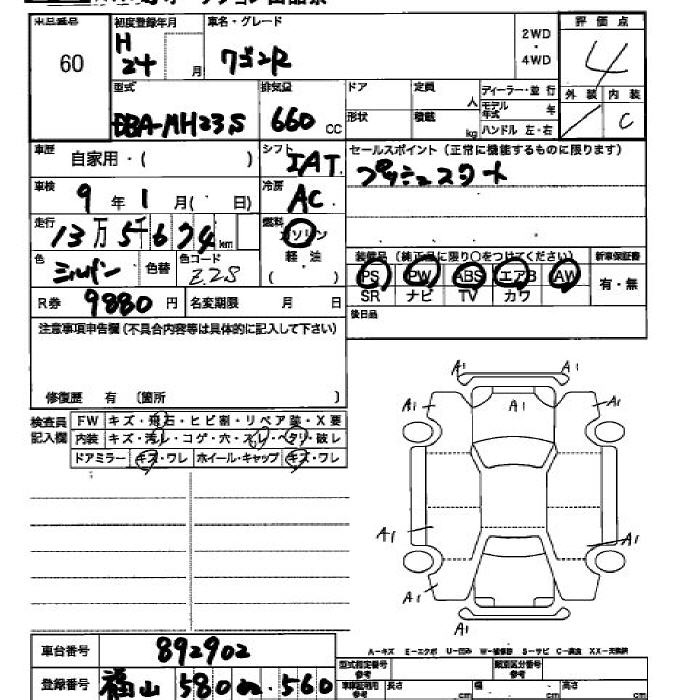 出品番号 初度登録年月 車名・グレード 2WD・4WD 評価点
60 H24 月 ワゴンR 4
型式 排気量 ドア 定員 人 ディーラー・並行 外装 内装
DBA-MH23S 660 CC 形状 積載 kg モデル年式 年 ハンドル 左・右 / C
車歴 自家用・( ) シフト IAT セールスポイント(正常に機能するものに限ります)
車検 9年1月( 日) 冷房 AC プッシュスタート
走行 13万5千674km 燃料 ガソリン
軽油
( )
装備品(純正品に限り○をつけてください) 新車保証書
色 シルバー 色替 色コード Z2S PS PW ABS エアB AW 有・無
R券 9880円 名変期限 月 日 SR ナビ TV カワ
注意事項申告欄(不具合内容等は具体的に記入して下さい) 後日品
修復歴 有 〔箇所 〕
検査員記入欄
FW キズ・飛石・ヒビ割・リペア跡・X要
内装 キズ・汚レ・コゲ・穴・スレ・ヘタリ・破レ
ドアミラー キズ・ワレ ホイール・キャップ キズ・ワレ
A1 A1
A1 A1 A1
A1 A1
A1
A1
A-キズ E-エクボ U-凹み W-補修跡 S-サビ C-腐食 XX-交換済
車台番号 892902 型式指定番号 参考 類別区分番号 参考
登録番号 福山 580 560 車庫証明用 参考 長さ cm 幅 cm 高さ cm